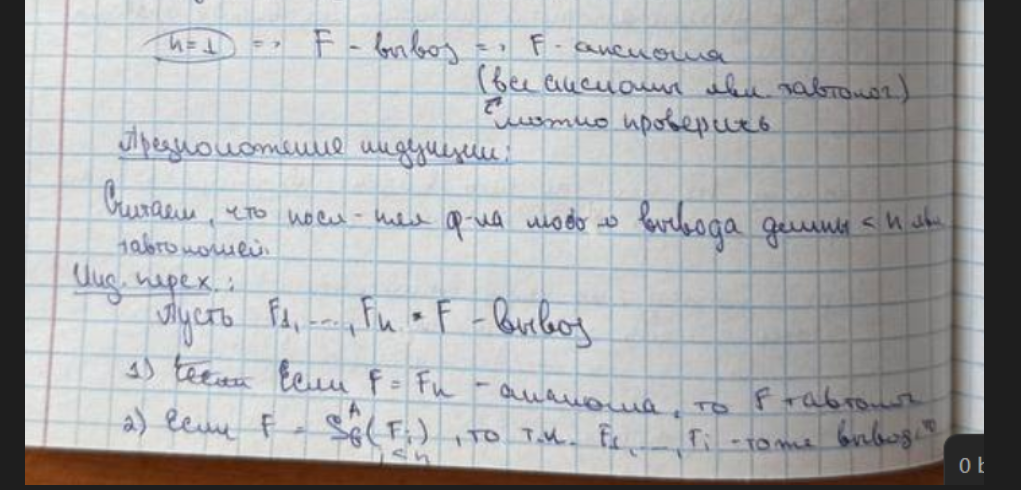 n=1 => F - вывод => F - аксиома
(все аксиомы явл. тавтолог)
можно проверить
Предположение индукции:
Считаем, что посл-няя ф-ла любо-о вывода длины < n явл
тавтологией.
Инд. перех.:
Пусть F1, ..., Fn = F - вывод
1) Если F = Fn - аксиома, то F тавтолог
2) Если F = S_B^A(Fi), то т.к. F1, ..., Fi - тоже вывод
i < n
0